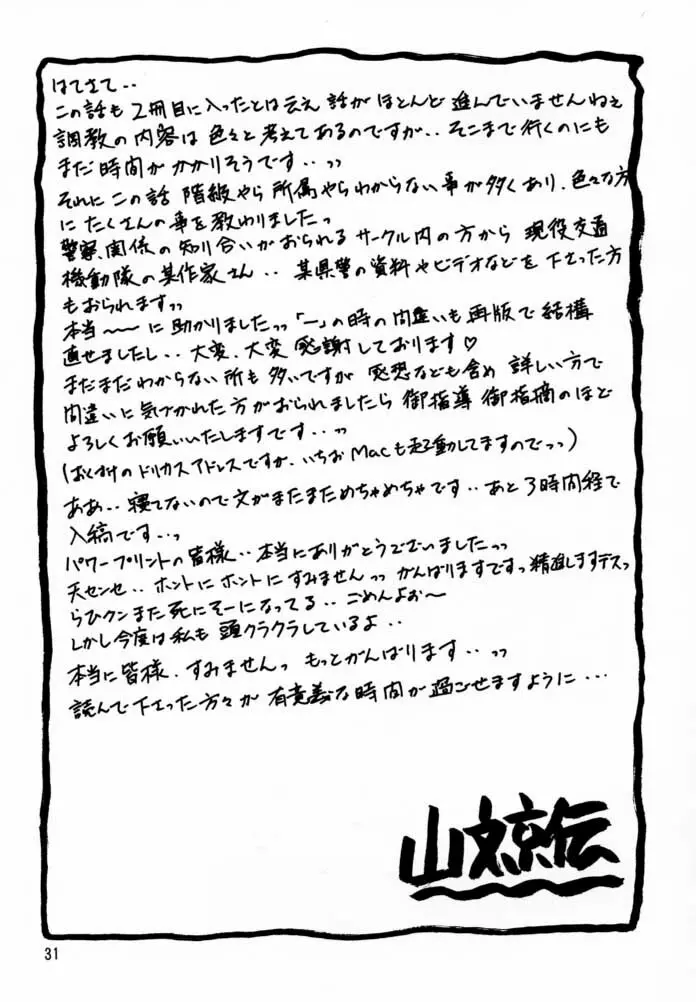 はてさて‥
この話も2冊目に入ったとは云え 話が ほとんど 進んでいませんねぇ
調教の内容は 色々と 考えて あるのですが‥ そこまで 行くのにも
まだ 時間が かかりそうです‥っっ
それに この話 階級やら 所属やら わからない 事が 多くあり、色々な方
に たくさんの 事を 教わりましたっ
警察関係の 知り合いが おられる サークル内の 方から 現役交通
機動隊の 某作家さん‥ 某県警の 資料や ビデオなどを 下さった方
も おられますっっ
本当〜〜〜に 助かりましたっっ 「一」の 時の 間違いも 再版で 結構
直せましたし‥ 大変、大変 感謝しております♡
まだまだ わからない 所も 多いですが 感想なども 含め 詳しい方で
間違いに 気づかれた 方が おられましたら 御指導 御指摘の ほど
よろしく お願いいたしますです‥っっ
(おくづけの ドリカスアドレスですが、いちお Macも 起動してますのでっっ)
ああ‥ 寝てないので 文が またまた めちゃめちゃです‥ あと 3時間程で
入稿です‥っ
パワープリントの 皆様‥ 本当に ありがとうございましたっっ
天センセ‥ ホントに ホントに すみませんっっ がんばりますですっ 精進しますデスっ
らひクン また 死にそーに なってる‥ ごめんよぉ〜
しかし 今度は 私も 頭クラクラしているよ‥
本当に 皆様、すみませんっ もっと がんばります‥っっ
読んで 下さった 方々が 有意義な 時間が 過ごせますように…
山文京伝
31